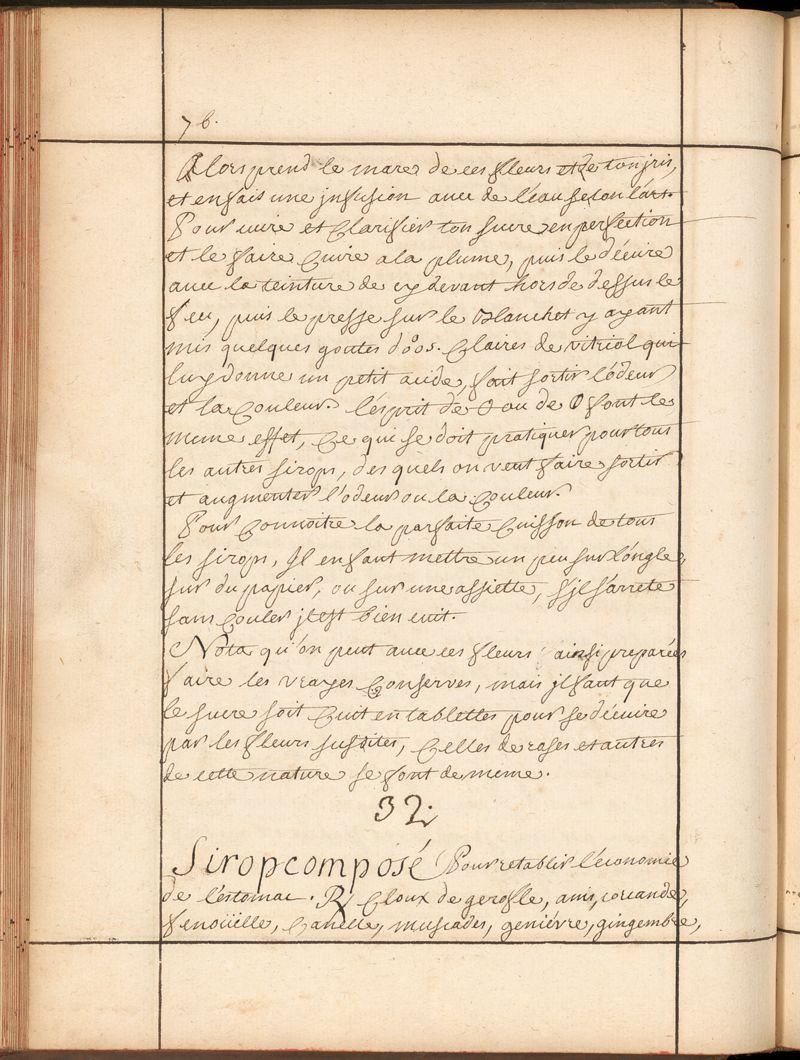 76.
Alors prend le marc de ces fleurs et de ton jris,
et en fais une jnfusion avec de l'eau selon l'art.
Pour cuire et Clarifier ton sucre en perfection
et le faire Cuire a la plume, puis le décuire
avec la teinture de cy devant hors de dessus le
feu, puis le presse sur le Blanchet y ayant
mis quelques goutes Claires de vitriol qui
luy donne un petit acide, fait sortir l'ódeur
et la Couleur. l'ésprit de ou de font le
meme effet, Ce qui se doit pratiquer pour tous
les autres sirops, desquels on veut faire sortir
et augmenter l'odeur ou la Couleur.
Pour Connoitre la parfaite Cuisson de tous
les sirops, Jl en faut mettre un peu sur l'óngle,
sur du papier, ou sur une assiette, s'jl s'arrete
sans Couler jl est bien cuit.
Nota qu'on peut avec ces fleurs ainsi preparées
faire les vrayes Conserves, mais jl faut que
le sucre soit Cuit en tablettes pour se décuire
par les fleurs susdites, Celles de roses et autres
de cette nature se font de meme.
32.
Sirop composé Pour retablir l'économie
de l'éstomac. R/ Cloux de gerofle, anis, coriande,
fenoüelle, Canelle, muscades, geniévre, gingembre,